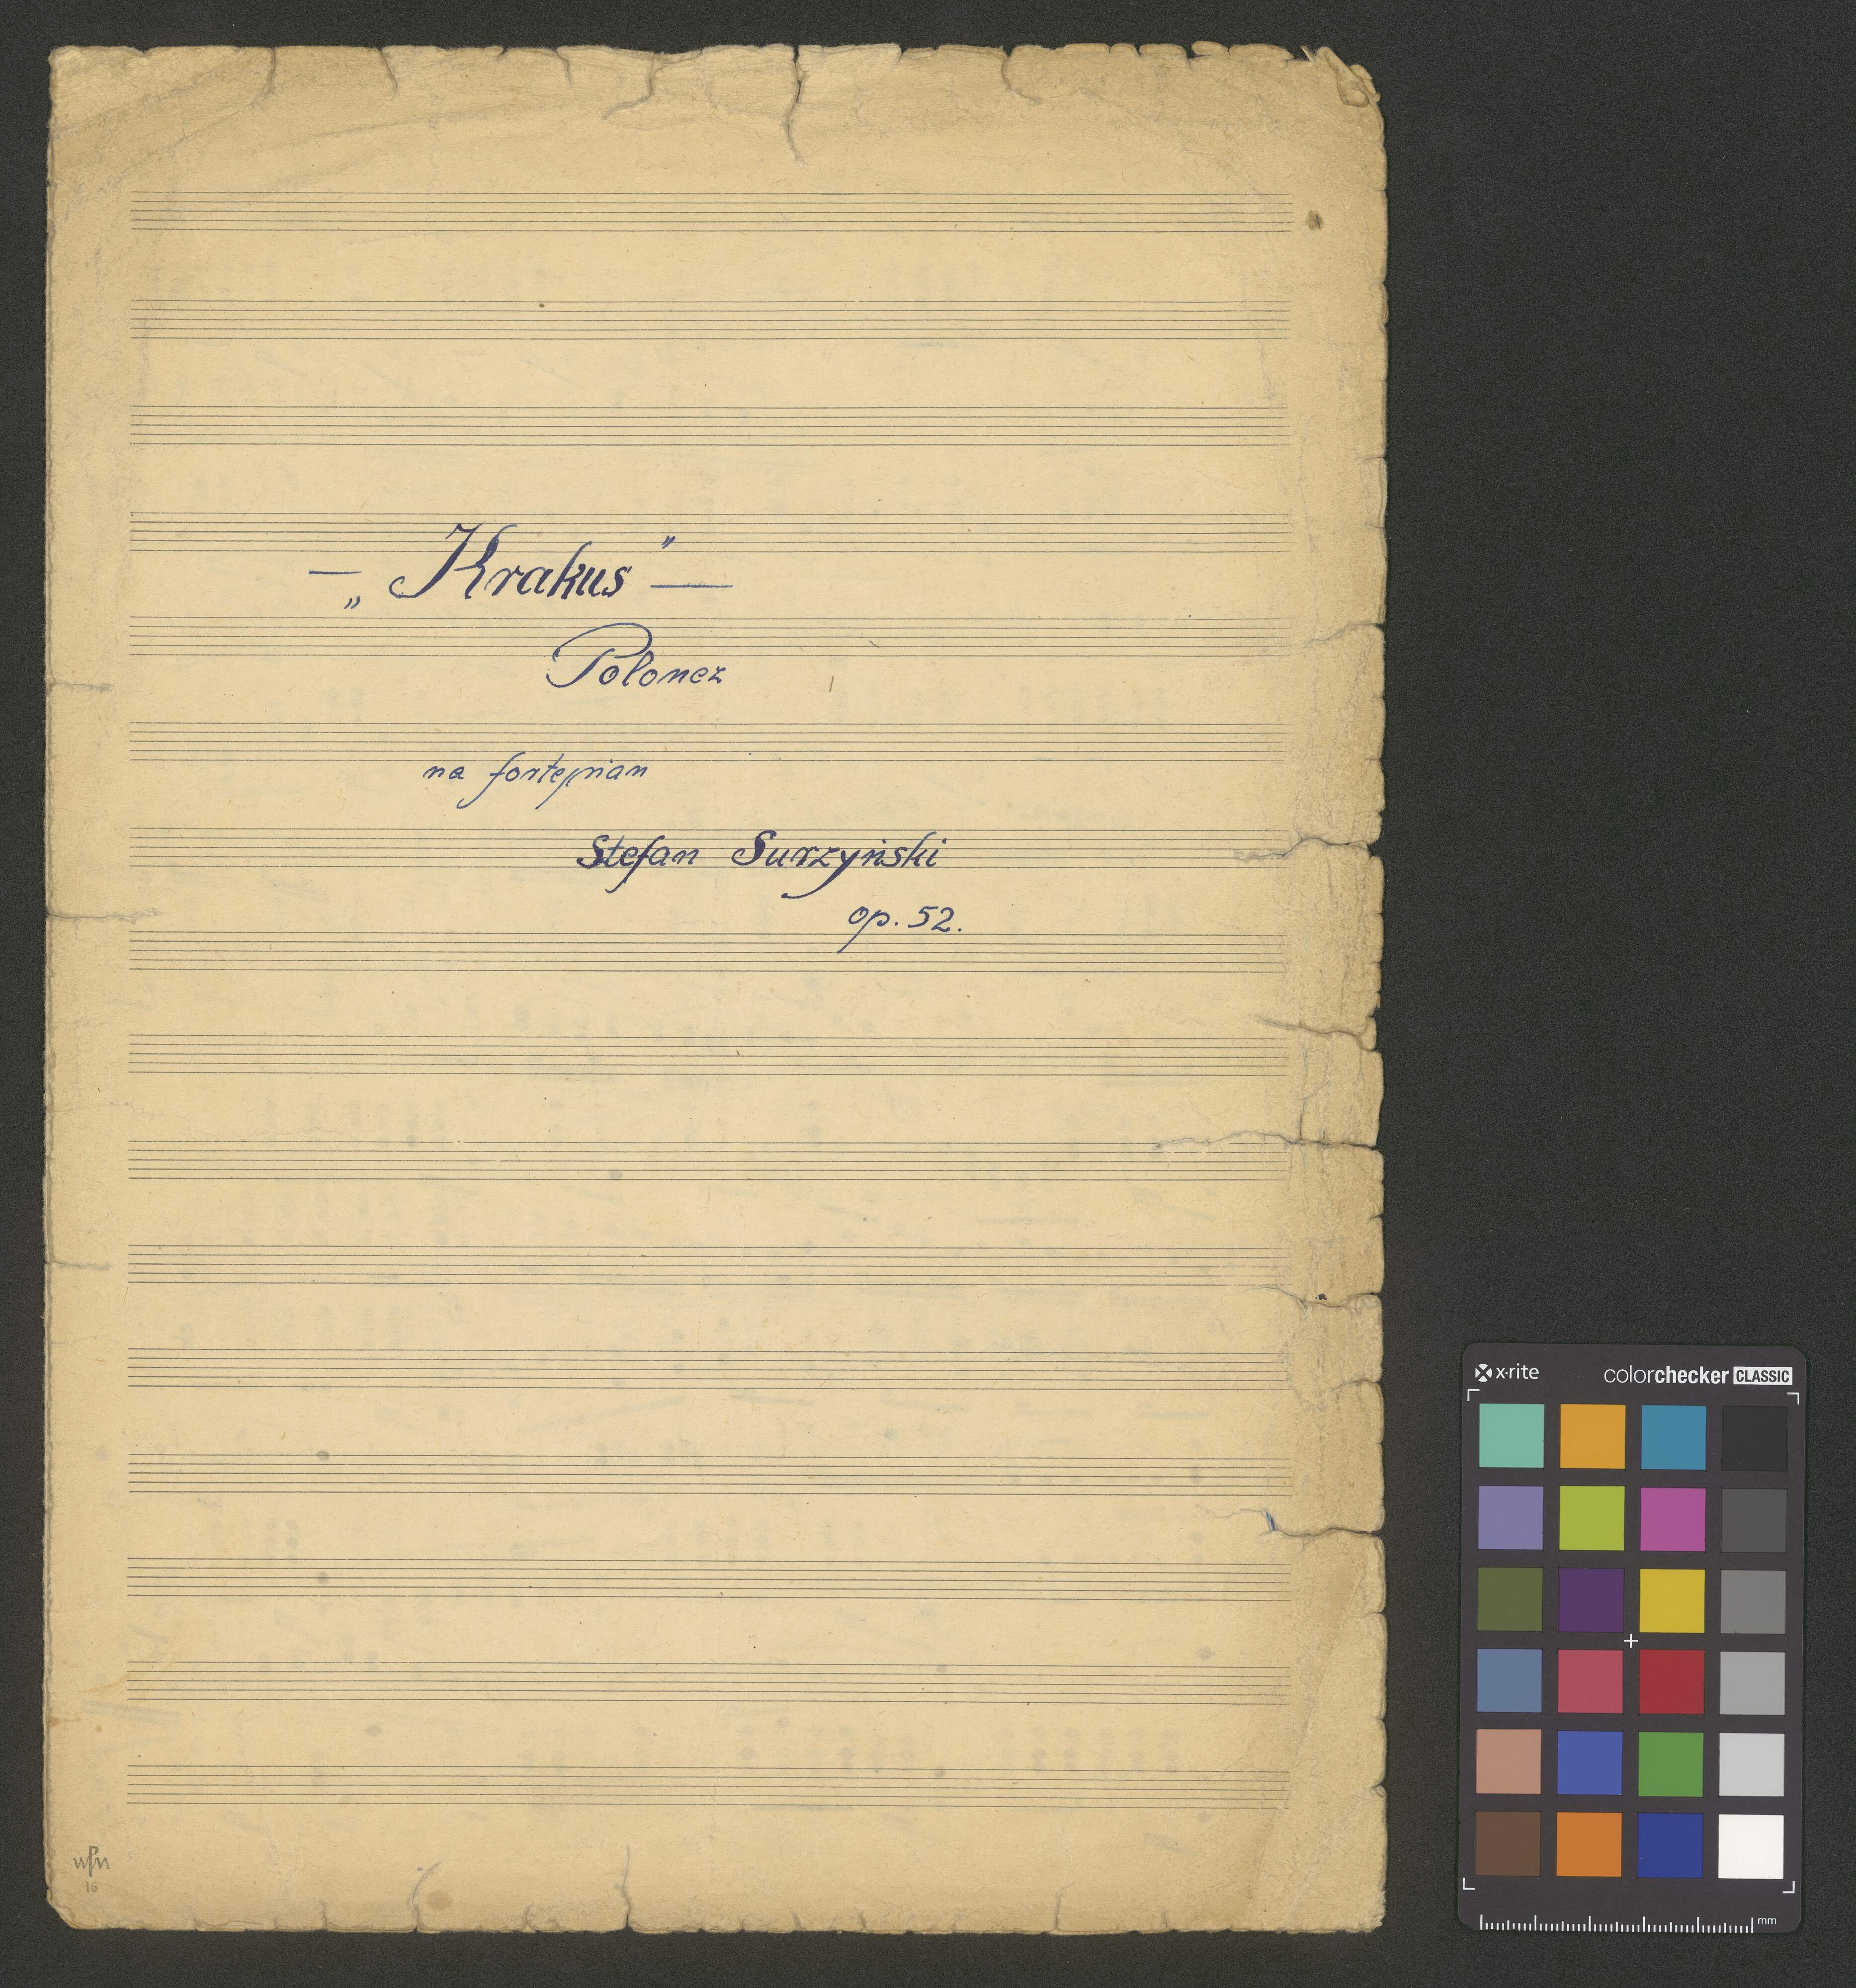 — „Krakus” —
Polonez
na fortepian
Stefan Surzyński
op. 52.
16
x·rite colorchecker CLASSIC
mm